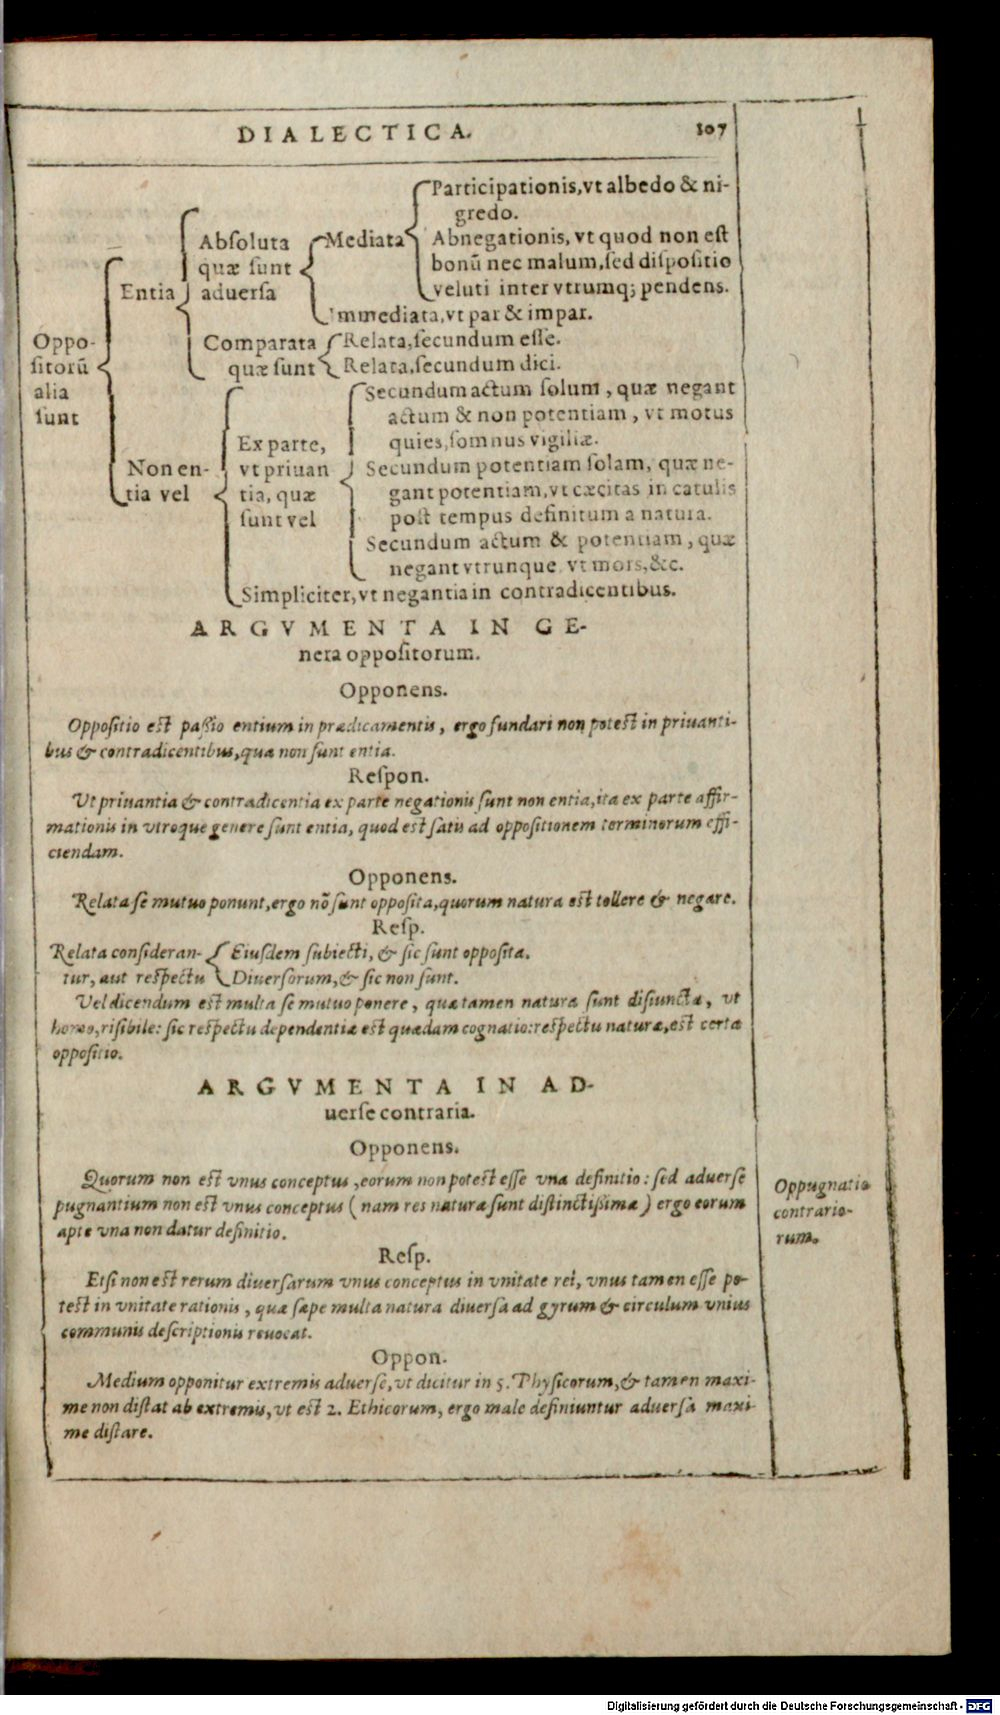 DIALECTICA. 107
Participationis, vt albedo & ni-
gredo.
Absoluta Mediata Abnegationis, vt quod non est
quæ sunt bonũ nec malum, sed dispositio
Entia aduersa veluti inter vtrumq; pendens.
Immediata, vt par & impar.
Oppo- Comparata Relata, secundum esse.
sitorũ quæ sunt Relata, secundum dici.
alia Secundum actum solum, quæ negant
sunt actum & non potentiam, vt motus
Ex parte, quies, somnus vigiliæ.
Non en- vt priuan Secundum potentiam solam, quæ ne-
tia vel tia, quæ gant potentiam, vt cæcitas in catulis
sunt vel post tempus definitum a natura.
Secundum actum & potentiam, quæ
negant vtrunque, vt mors, &c.
Simpliciter, vt negantia in contradicentibus.
ARGVMENTA IN GE-
nera oppositorum.
Opponens.
Oppositio est passio entium in prædicamentis, ergo fundari non potest in priuanti-
bus & contradicentibus, quæ non sunt entia.
Respon.
Vt priuantia & contradicentia ex parte negationis sunt non entia, ita ex parte affir-
mationis in vtroque genere sunt entia, quod est satis ad oppositionem terminorum effi-
ciendam.
Opponens.
Relata se mutuo ponunt, ergo nõ sunt opposita, quorum natura est tollere & negare.
Resp.
Relata consideran- Eiusdem subiecti, & sic sunt opposita.
tur, aut respectu Diuersorum, & sic non sunt.
Vel dicendum est multa se mutuo ponere, quæ tamen natura sunt disiuncta, vt
homo, risibile: sic respectu dependentiæ est quædam cognatio: respectu naturæ, est certa
oppositio.
ARGVMENTA IN AD-
uerse contraria.
Opponens.
Quorum non est vnus conceptus, eorum non potest esse vna definitio: sed aduerse
pugnantium non est vnus conceptus (nam res natura sunt distinctissimæ) ergo eorum
apte vna non datur definitio.
Oppugnatio
contrario-
rum.
Resp.
Etsi non est rerum diuersarum vnus conceptus in vnitate rei, vnus tamen esse po-
test in vnitate rationis, quæ sæpe multa natura diuersa ad gyrum & circulum vnius
communis descriptionis reuocat.
Oppon.
Medium opponitur extremis aduerse, vt dicitur in 5. Physicorum, & tamen maxi-
me non distat ab extremis, vt est 2. Ethicorum, ergo male definiuntur aduersa maxi-
me distare.
Digitalisierung gefördert durch die Deutsche Forschungsgemeinschaft - DFG